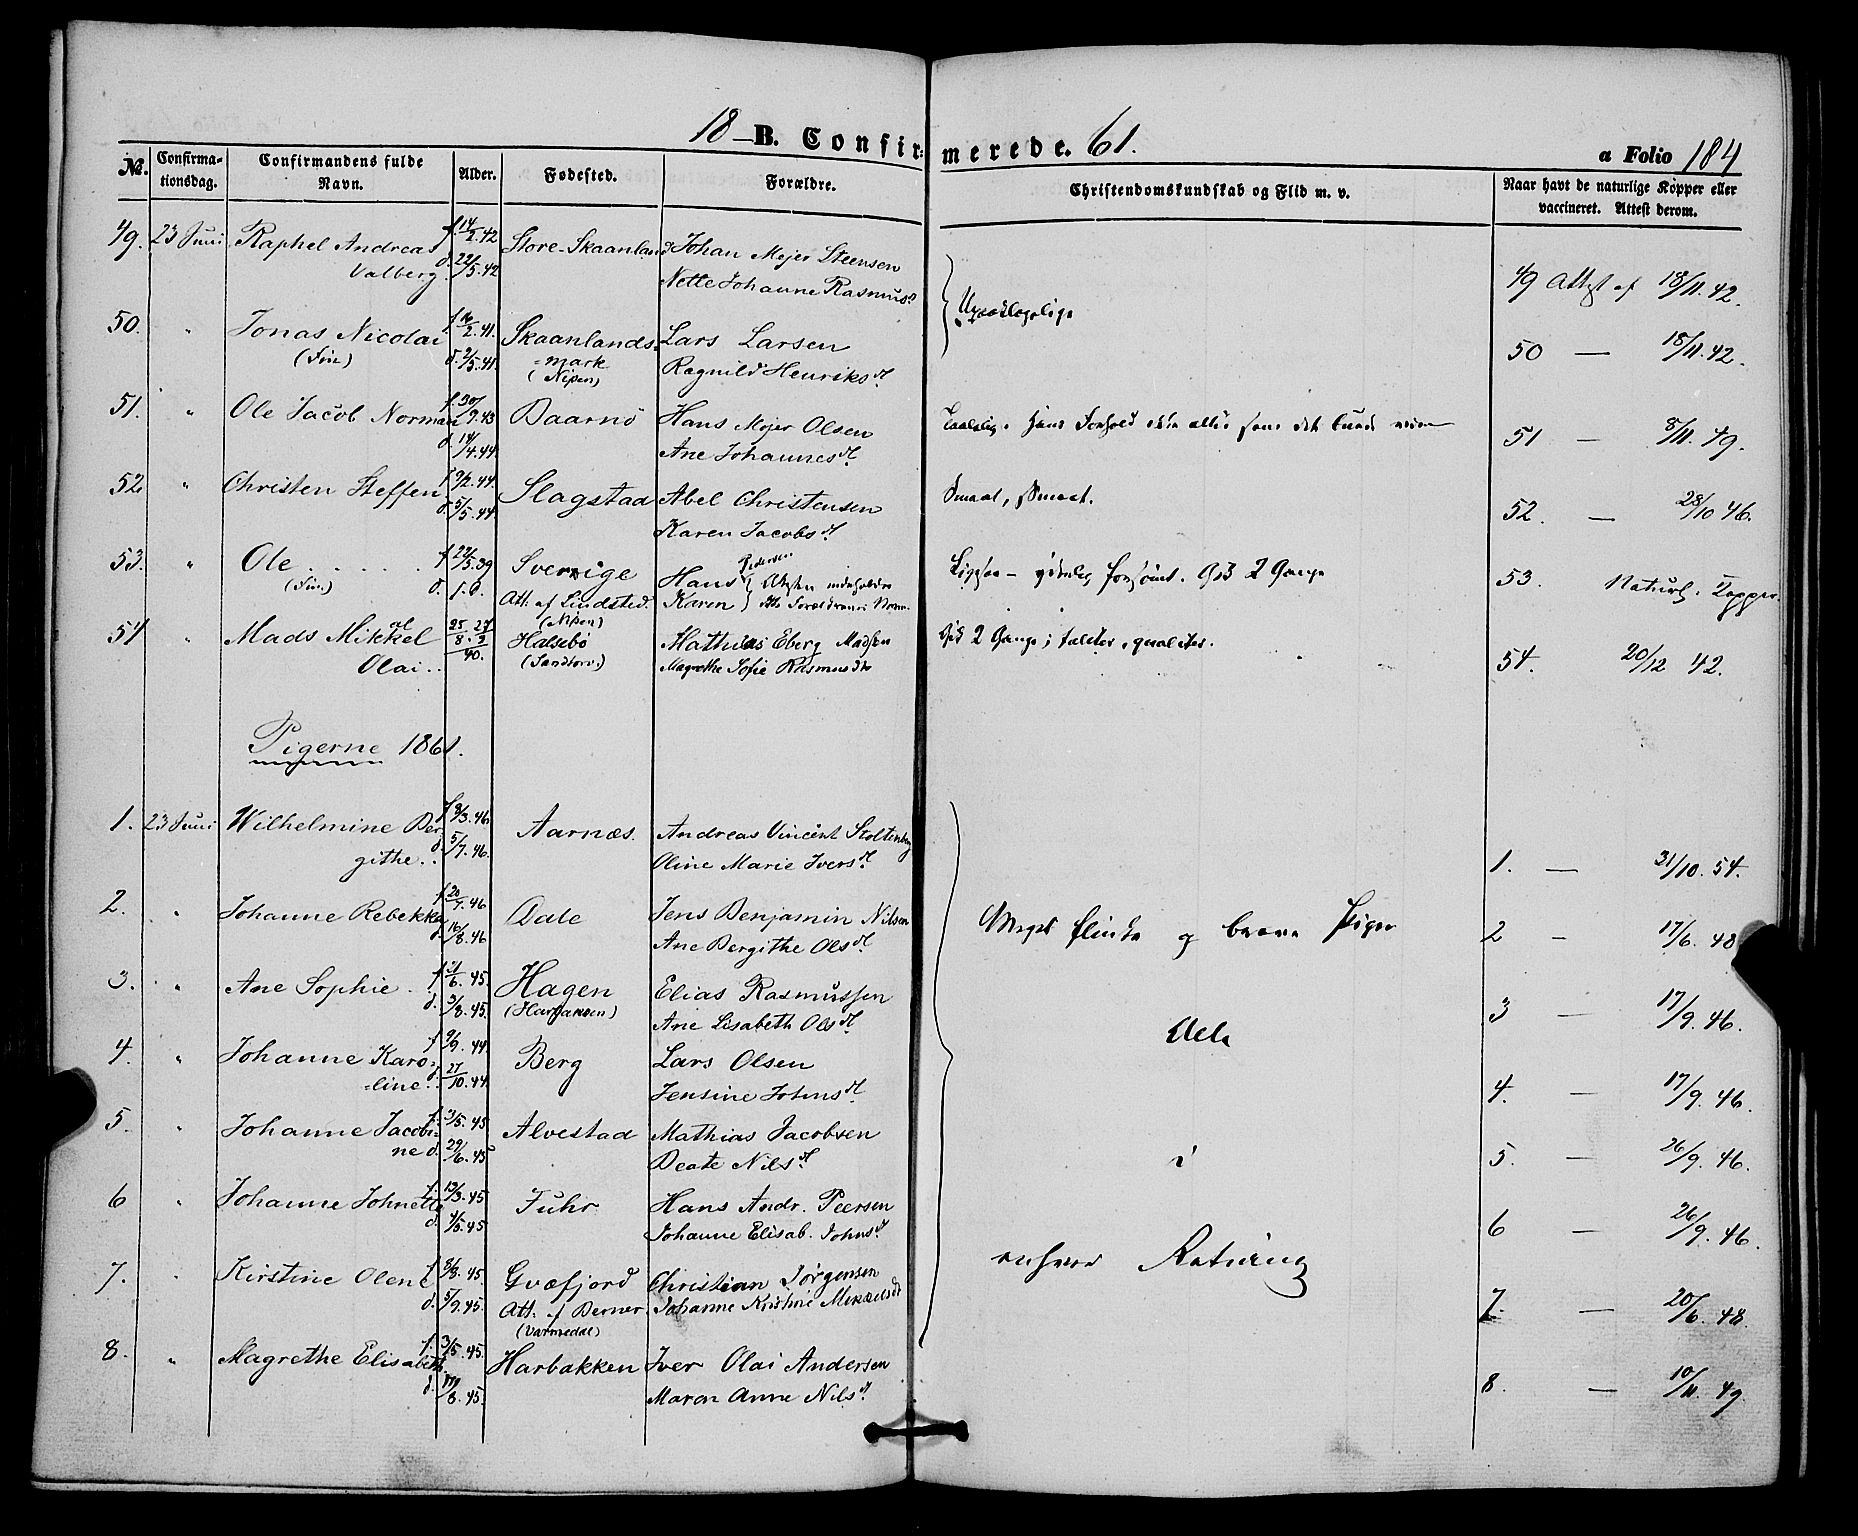 18 – B. Confirmerede. 61.
a Folio 184
No. Confirmationsdag. Confirmandens fulde Navn. Alder. Fødested. Forældre. Christendomskundskab og Flid m. v. Naar havt de naturlige Kopper eller vaccineret. Attest derom.
49. 23 Juni Raphel Andreas f. 14/2.42 Store-Skaanland Johan Mejer Steensen
Valberg. d. 22/5.42 Nette Johanne Rasmusd. 49 Attest af 18/11.42.
50. " Jonas Nicolai f. 16/2.41. Skaanlands- Lars Larsen 50 — 18/11.42.
(Fin) d. 2/5.41. =mark Ragnild Henriksd.
(Nipen)
51. " Ole Jacob Norman f. 30/9.43 Baarnö Hans Mejer Olsen
d. 14/4.44. Ane Johannesd. 51 — 8/11.49.
52. " Christen Steffen f. 9/2.44. Slagstad Abel Christensen Smaat, smaat.
d. 5/5.44. Karen Jacobsd. 52. — 28/10 46.
53. " Ole . . . . . f. 22/5.39 Sverrige Hans Pedersen
(Fin) d. Att. af Lindsted. Karen 53. Naturl. Kopper.
(Nipen)
54 " Mads Mikkel 25/8. Halsebö Mathias Eberg Madsen
Olai.. 40. (Sandtorv.) Magrethe Sofie Rasmusdtr 54. 20/12 42.
Pigerne 1861.
1. 23 Juni Wilhelmine Ber f. 8/3.46. Aarnæs. Andreas Vincent Stoltenberg
githe.. d. 5/7.46. Oline Marie Iversd. 1. — 31/10.54.
2. " Johanne Rebekka f. 20/7.46 Dale Jens Benjamin Nilsen Meget flinke og brave Piger 2 — 17/6.48
d. 16/8.46 Ane Bergithe Olsd.
3. " Ane Sophie . f. 21/6.45. Hagen Elias Rasmussen 3 — 17/9.46.
d. 3/8.45. Ane Lisabeth Olsd.
4. " Johanne Karo- f. 9/9.44. Berg Lars Olsen 4. — 17/9.46.
=line.. d. 27/10.44. Jensine Johnsd.
5. " Johanne Jacobi- f. 3/5.45 Alvestad Mathias Jacobsen i 5. — 26/9.46.
ne d. 29/6.45 Beate Nilsd.
6 " Johanne Johnette f. 13/3.45 Fuhr Hans Andr. Peersen 6 — 26/9.46.
d. 4/5.45 Johanne Elisab. Johnsd.
7. " Kirstine Olene f. 8/8.45. Gvæfjord Christian Jørgensen enhver Retning
d. 5/9.45. Att. af Berner. Johanne Kristine Mikaelsd 7. — 20/6.48.
(Varmedal)
8. " Magrethe Elisabeth f. 3/5.45. Harbakken Iver Olai Andersen 8. — 10/11.49.
d. /8.45. Maren Anne Nilsd.